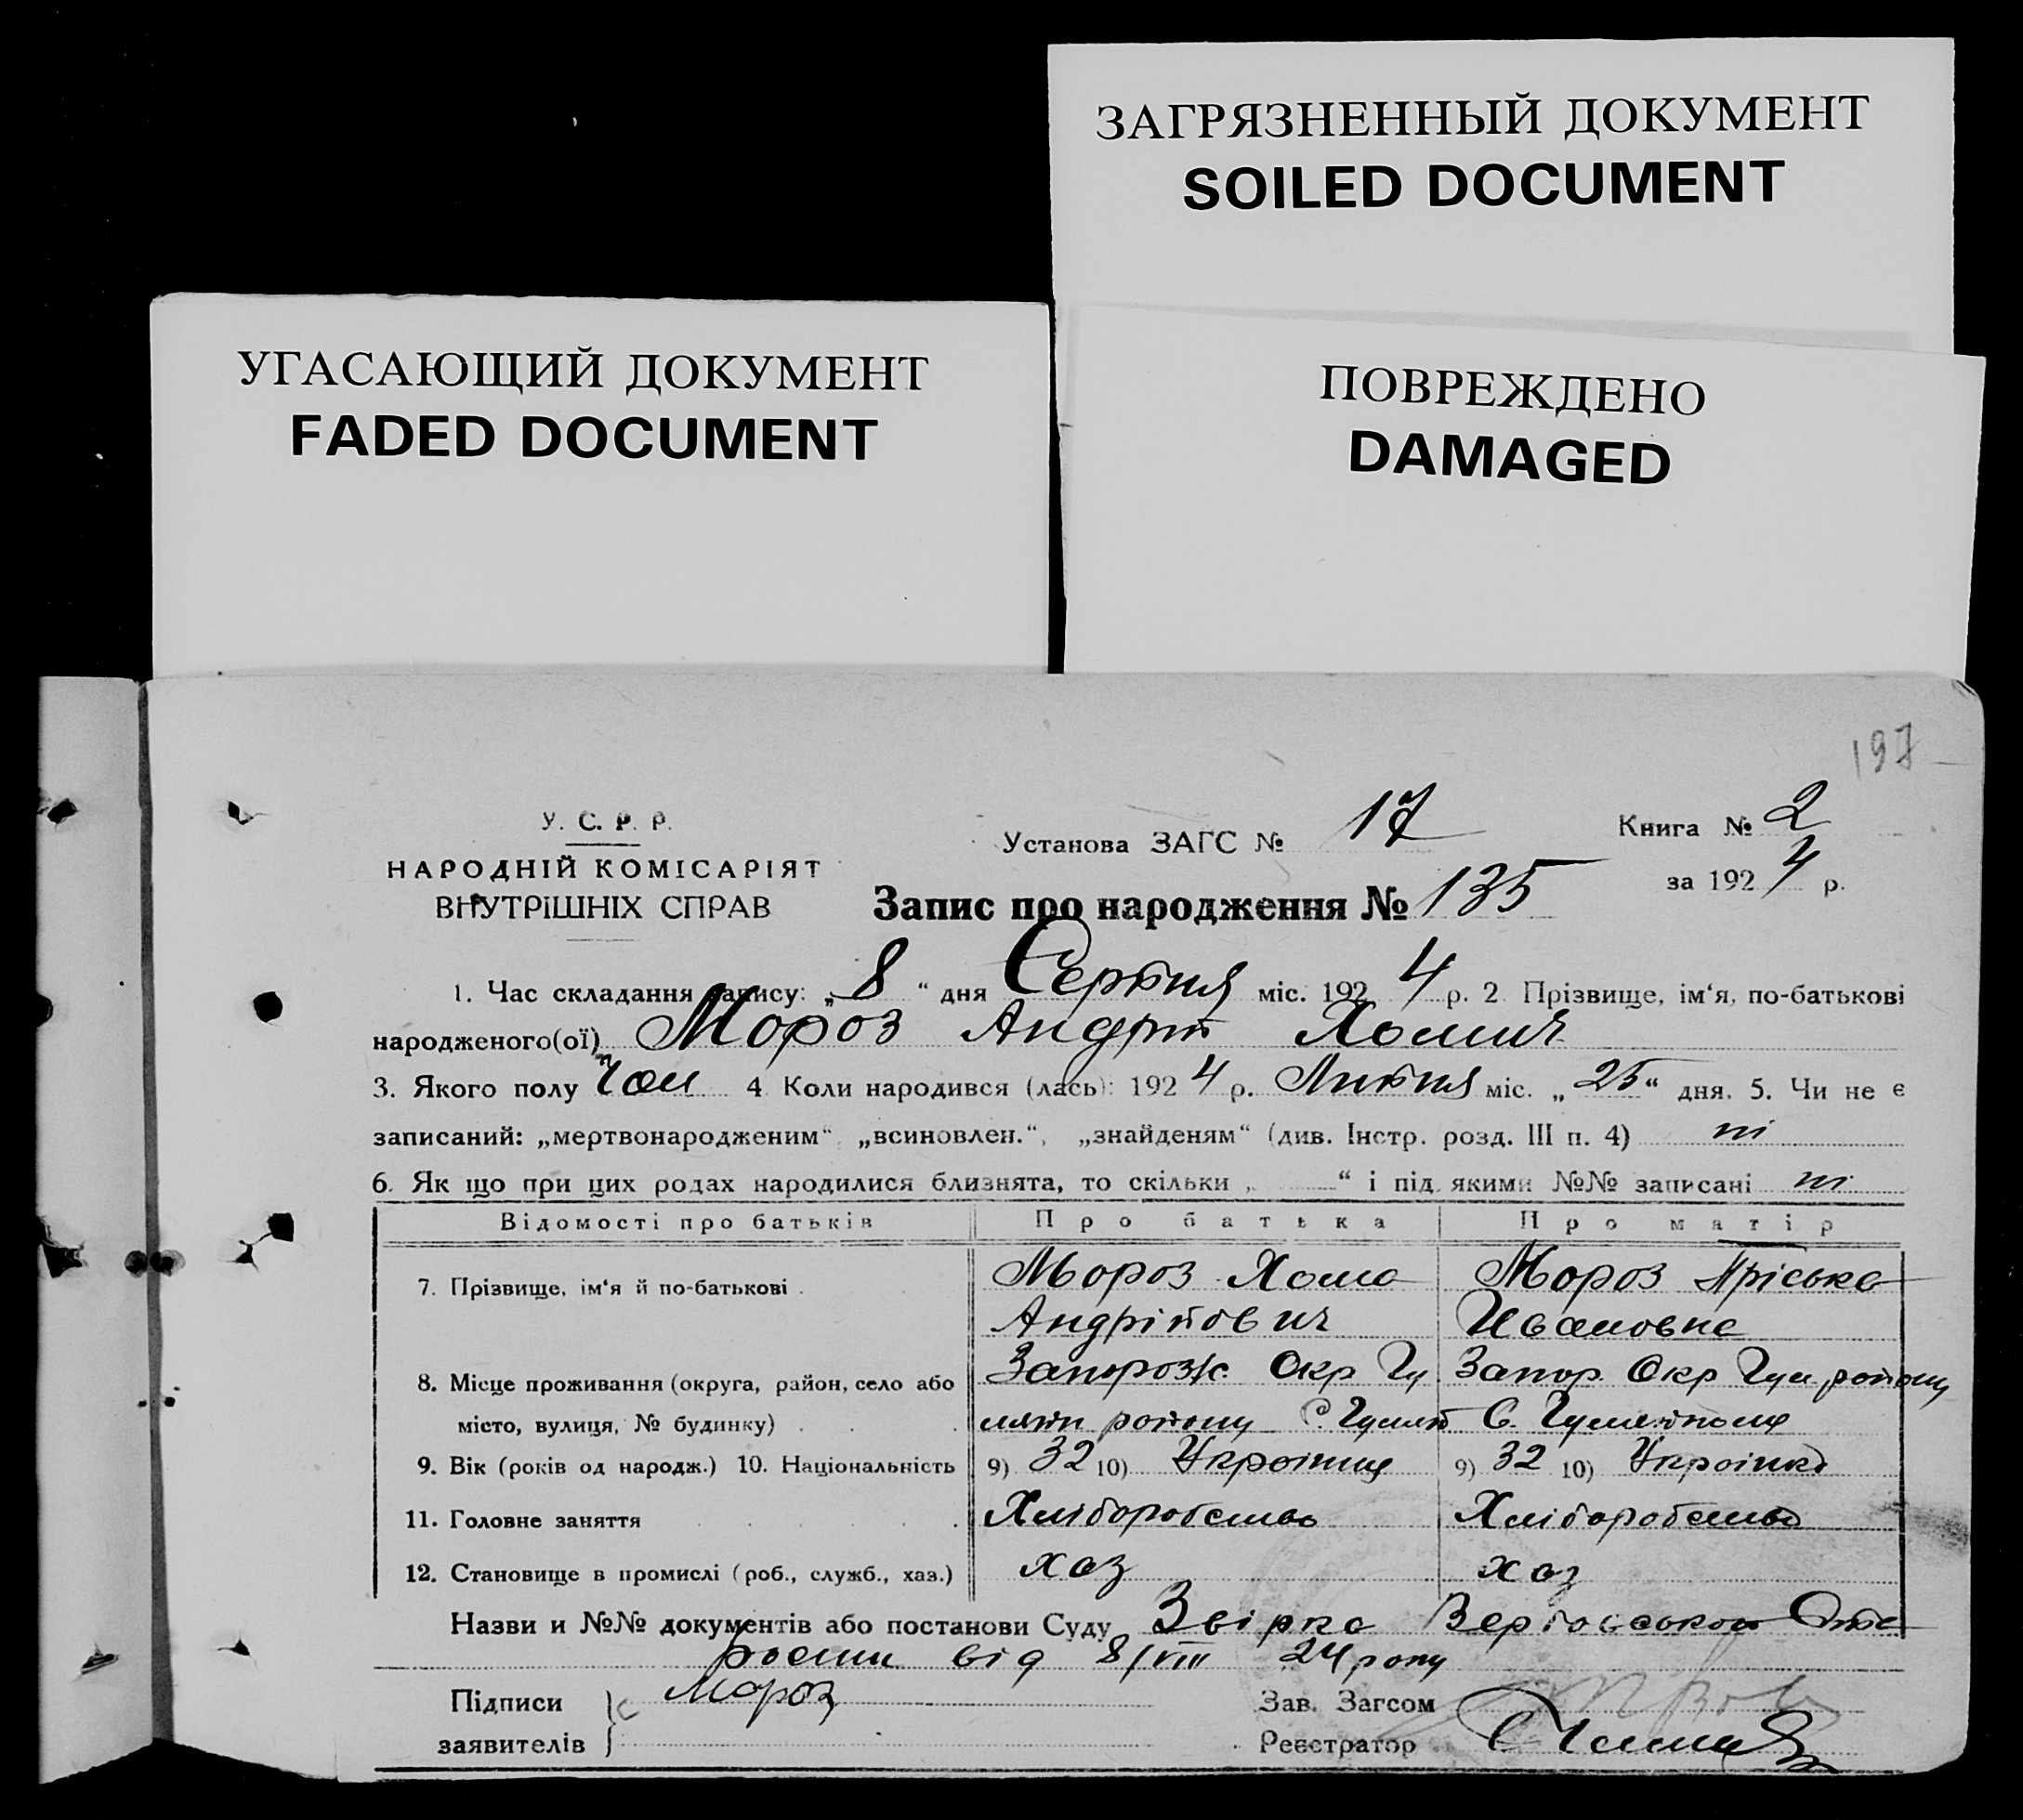 ЗАГРЯЗНЕННЫЙ ДОКУМЕНТ
SOILED DOCUMENT
УГАСАЮЩИЙ ДОКУМЕНТ
FADED DOCUMENT
ПОВРЕЖДЕНО
DAMAGED
197
У. С. Р. Р.
НАРОДНІЙ КОМІСАРІЯТ
ВНУТРІШНІХ СПРАВ
Установа ЗАГС № 17
Книга № 2
за 1924 р.
Запис про народження № 135
1. Час складання запису: „8“ дня Серпня міс. 1924 р. 2 Прізвище, ім‘я, по-батькові
народженого(ої) Мороз Андрій Хомич
3. Якого полу Чол 4 Коли народився (лась): 1924 р. Липня міс. „25“ дня. 5. Чи не є
записаний: „мертвонародженим“, „всиновлен.“, „знайденям“ (див. Інстр. розд. III п. 4) ні
6. Як що при цих родах народилися близнята, то скільки „ “ і під якими №№ записані ні
Відомості про батьків Про батька Про матір
7. Прізвище, ім‘я й по-батькові Мороз Хома Мороз Пріська
Андрійович Ивановна
8. Місце проживання (округа, район, село або Запорозж. Окр Гу Запор. Окр Гул району
місто, вулиця, № будинку) ляйп району С. Гуляй С. Гуляйполя
9. Вік (років од народж.) 10. Національність 9) 32 10) Украінць 9) 32 10) Украінка
11. Головне заняття Хліборобство Хліборобство
12. Становище в промислі (роб., служб., хаз.) хаз хаз
Назви и №№ документів або постанови Суду
від 8/VIII 24 року
Підписи Мороз
заявителів
Зав. Загсом
Реєстратор